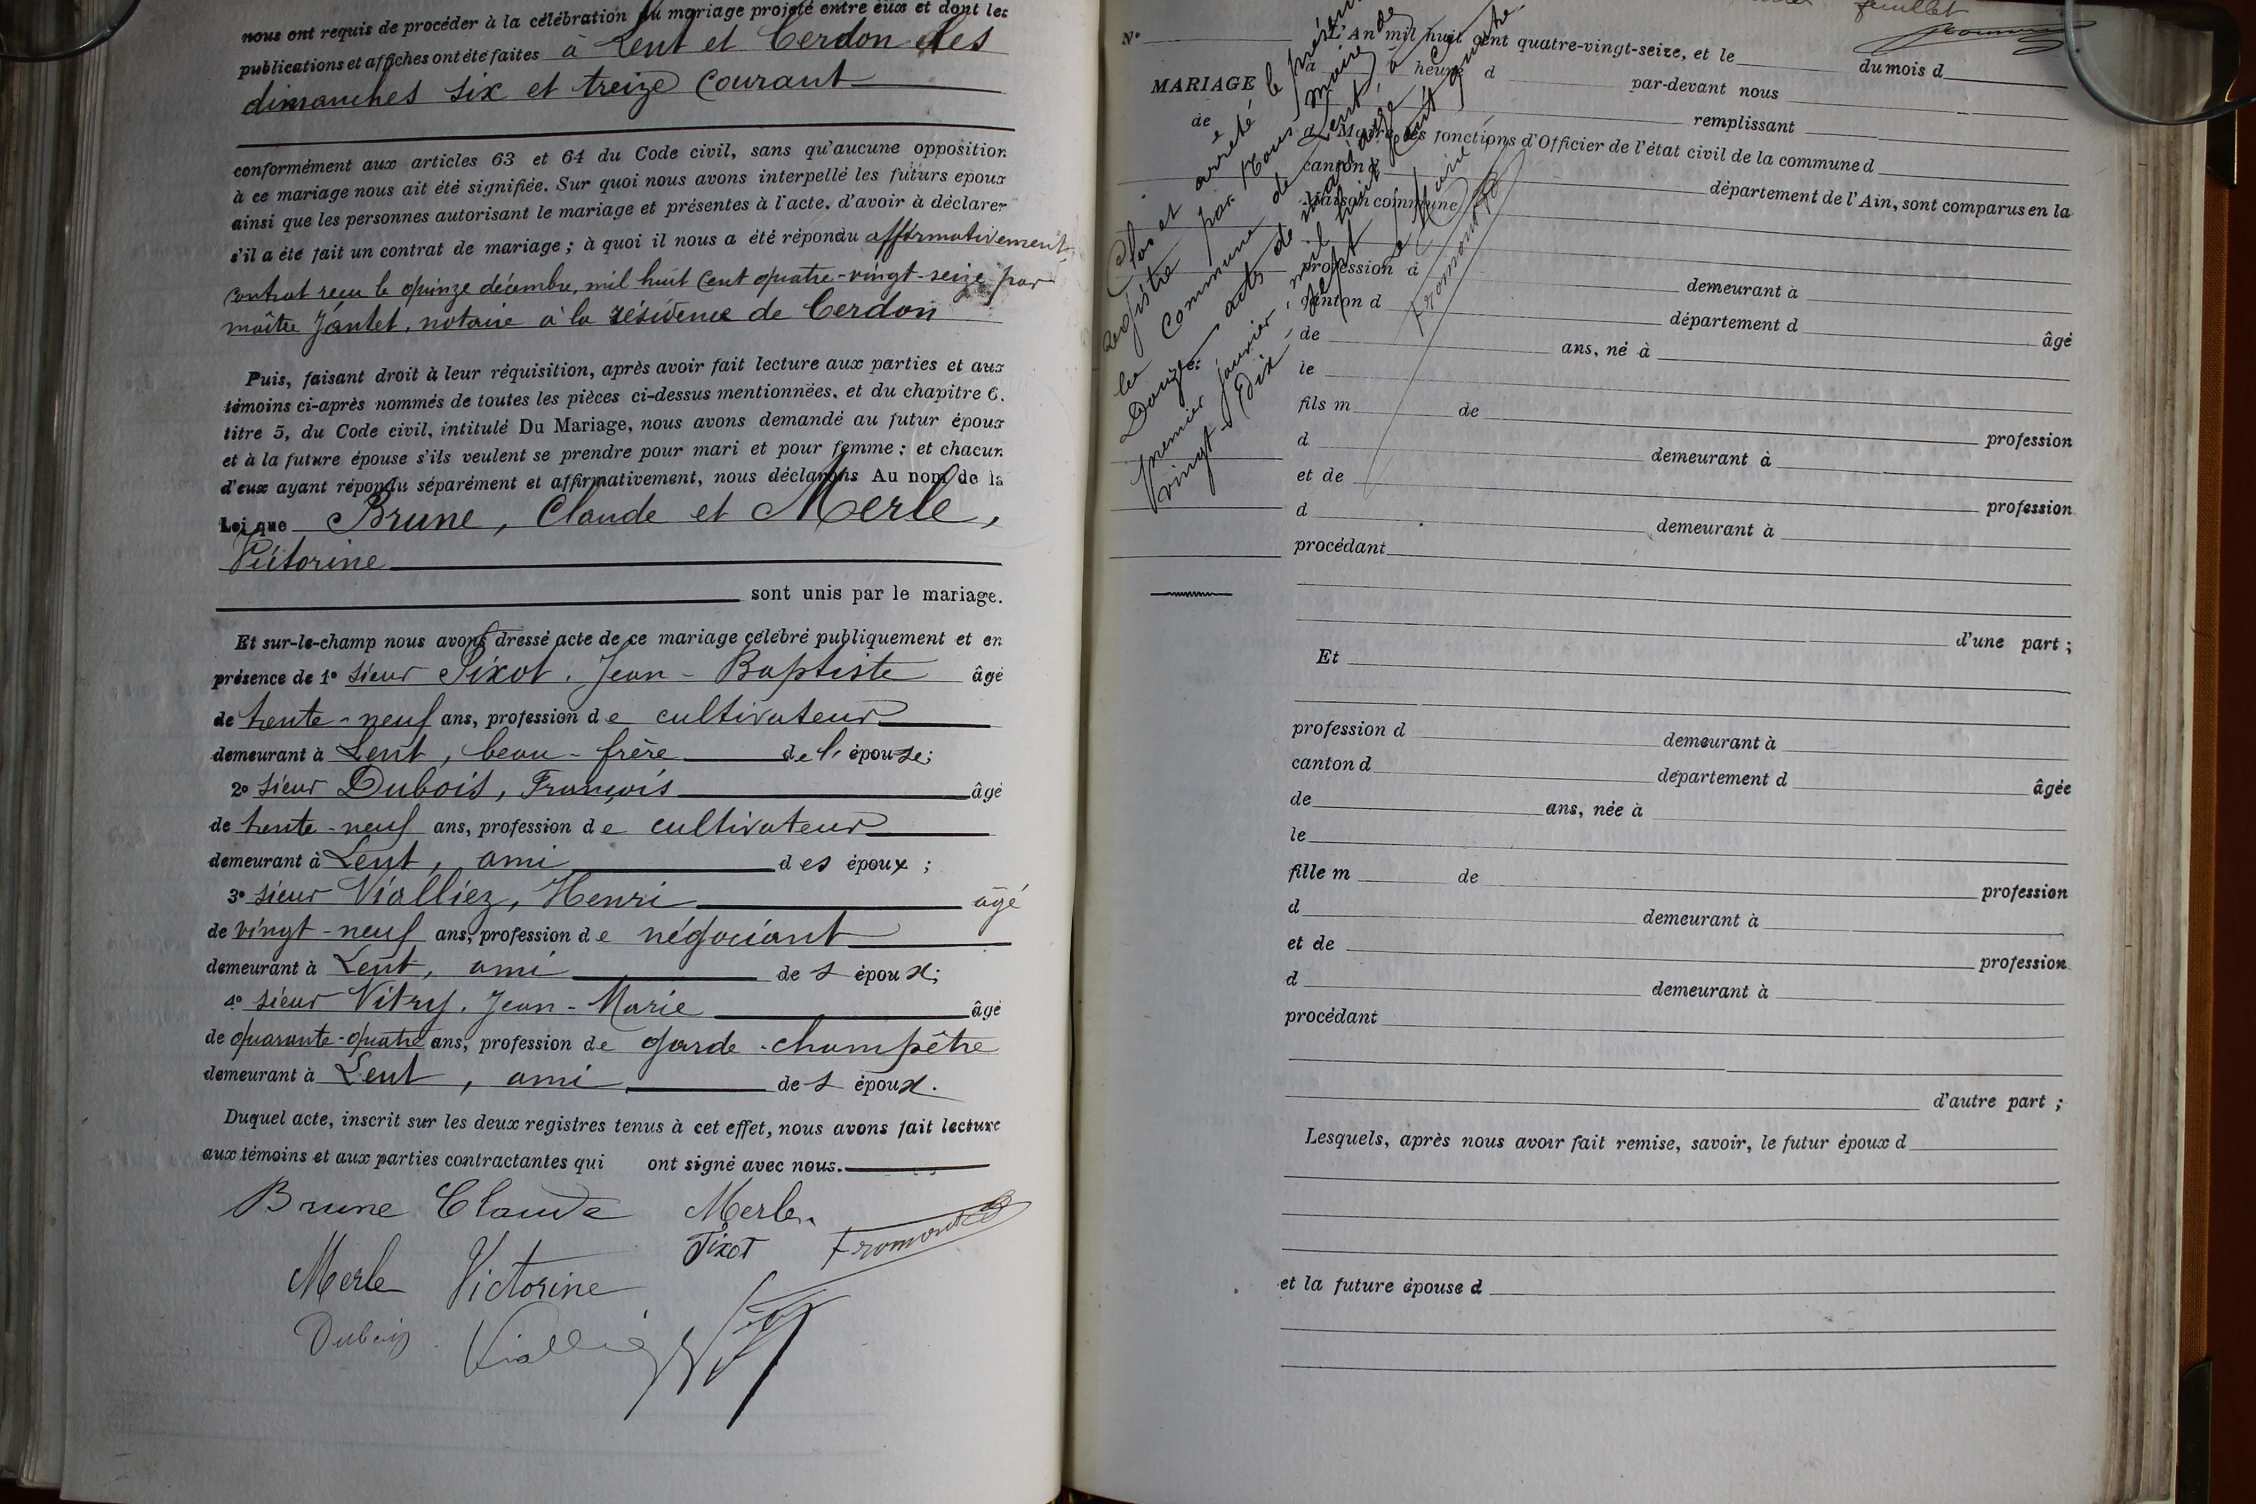 nous ont requis de procéder à la célébration du mariage projeté entre eux et dont les
publications et affiches ont été faites à Lent et Cerdon les
dimanches six et treize courant
conformément aux articles 63 et 64 du Code civil, sans qu'aucune opposition
à ce mariage nous ait été signifiée. Sur quoi nous avons interpellé les futurs époux
ainsi que les personnes autorisant le mariage et présentes à l'acte, d'avoir à déclarer
s'il a été fait un contrat de mariage ; à quoi il nous a été répondu affirmativement,
contrat reçu le quinze décembre, mil huit cent quatre-vingt-seize par
maître Jantet, notaire à la résidence de Cerdon
Puis, faisant droit à leur réquisition, après avoir fait lecture aux parties et aux
témoins ci-après nommés de toutes les pièces ci-dessus mentionnées, et du chapitre 6,
titre 5, du Code civil, intitulé Du Mariage, nous avons demandé au futur époux
et à la future épouse s'ils veulent se prendre pour mari et pour femme : et chacun
d'eux ayant répondu séparément et affirmativement, nous déclarons Au nom de la
Loi que Brune, Claude et Merle,
Victorine
sont unis par le mariage.
Et sur-le-champ nous avons dressé acte de ce mariage célébré publiquement et en
présence de 1° sieur Pixot, Jean-Baptiste âgé
de trente-neuf ans, profession de cultivateur
demeurant à Lent, beau-frère de l'épouse ;
2° sieur Dubois, François âgé
de trente-neuf ans, profession de cultivateur
demeurant à Lent, ami des époux ;
3° sieur Vialliez, Henri âgé
de vingt-neuf ans, profession de négociant
demeurant à Lent, ami des époux ;
4° sieur Vitry, Jean-Marie âgé
de quarante-quatre ans, profession de garde-champêtre
demeurant à Lent, ami des époux.
Duquel acte, inscrit sur les deux registres tenus à cet effet, nous avons fait lecture
aux témoins et aux parties contractantes qui ont signé avec nous.
Brune Claude Merle
Pixot
Merle Victorine
Dubois
feuillet
N° L'An mil huit cent quatre-vingt-seize, et le du mois d
MARIAGE à heure d par-devant nous
de remplissant
à Maire les fonctions d'Officier de l'état civil de la commune d
canton d département de l'Ain, sont comparus en la
Maison commune
profession d demeurant à
canton d département d âgé
de ans, né à
le
fils m de profession
d demeurant à
et de profession
d demeurant à
procédant
d'une part ;
Et
profession d demeurant à
canton d département d âgée
de ans, née à
le
fille m de profession
d demeurant à
et de profession
d demeurant à
procédant
d'autre part ;
Lesquels, après nous avoir fait remise, savoir, le futur époux d
et la future épouse d
Clos et arrêté le présent
registre par Nous, maire de
la commune de Lent, à
Douze actes de mariage
premier janvier, mil huit cent quatre
vingt-dix-sept
Le Maire